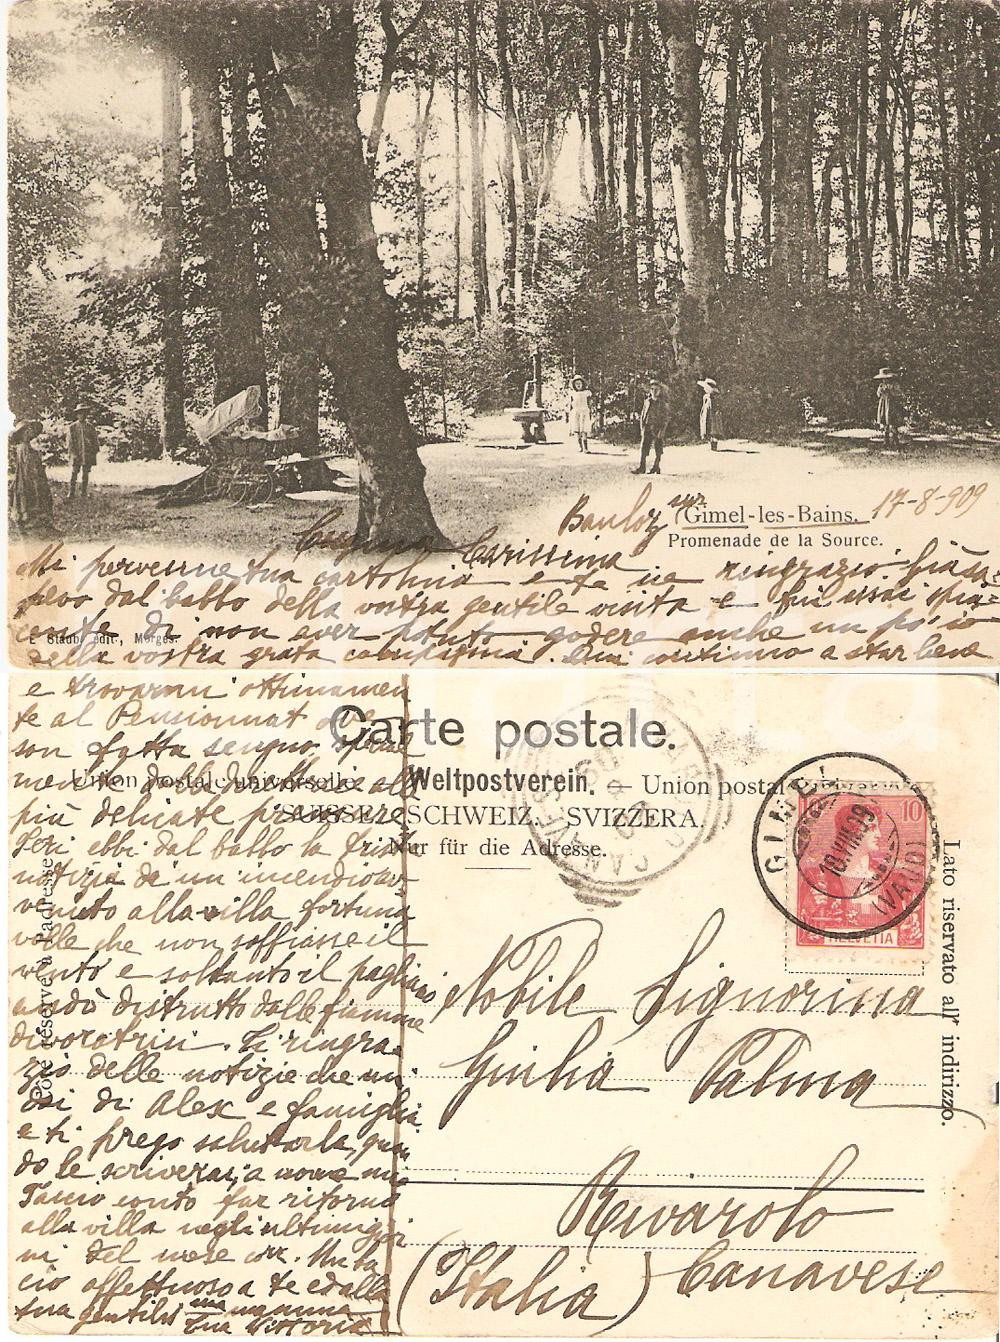 Bauloz sur Gimel-les-Bains. 17-8-909
Promenade de la Source.
Cugina Carissima
Mi pervenne tua cartolina e te ne ringrazio. Sapevo dal babbo della vostra gentile visita e fui assai spia=
cente di non aver potuto godere anche un po' io
E. Staub, édit., Morges.
della vostra grata compagnia. Qui continuo a star bene
e trovarmi ottimamen
te al Pensionnat ove
son fatta segno special
mente dalle
più delicate premure
Ieri ebbi dal babbo la triste
notizia di un incendio av-
venuto alla villa fortuna
volle che non soffiasse il
vento e soltanto il pagliaio
andò distrutto dalle fiamme
divoratrici. Ti ringra
zio delle notizie che mi
dai di Alex e famiglia
e ti prego salutarla, quan
do le scriverai, a nome mio
Faccio conto far ritorno
alla villa negli ultimi gior
ni del mese corr. Un ba
cio affettuoso a te e dalla
tua gentil mamma
tua Vittoria
Carte postale.
Union postale universelle. — Weltpostverein. — Union postale
SUISSE. SCHWEIZ. SVIZZERA.
Nur für die Adresse.
Côté réservé à l'adresse.
Lato riservato all' indirizzo.
GIMEL
(VAUD)
10
HELVETIA
CANAVESE
Nobile Signorina
Giulia Palma
Rivarolo
Canavese
(Italia)